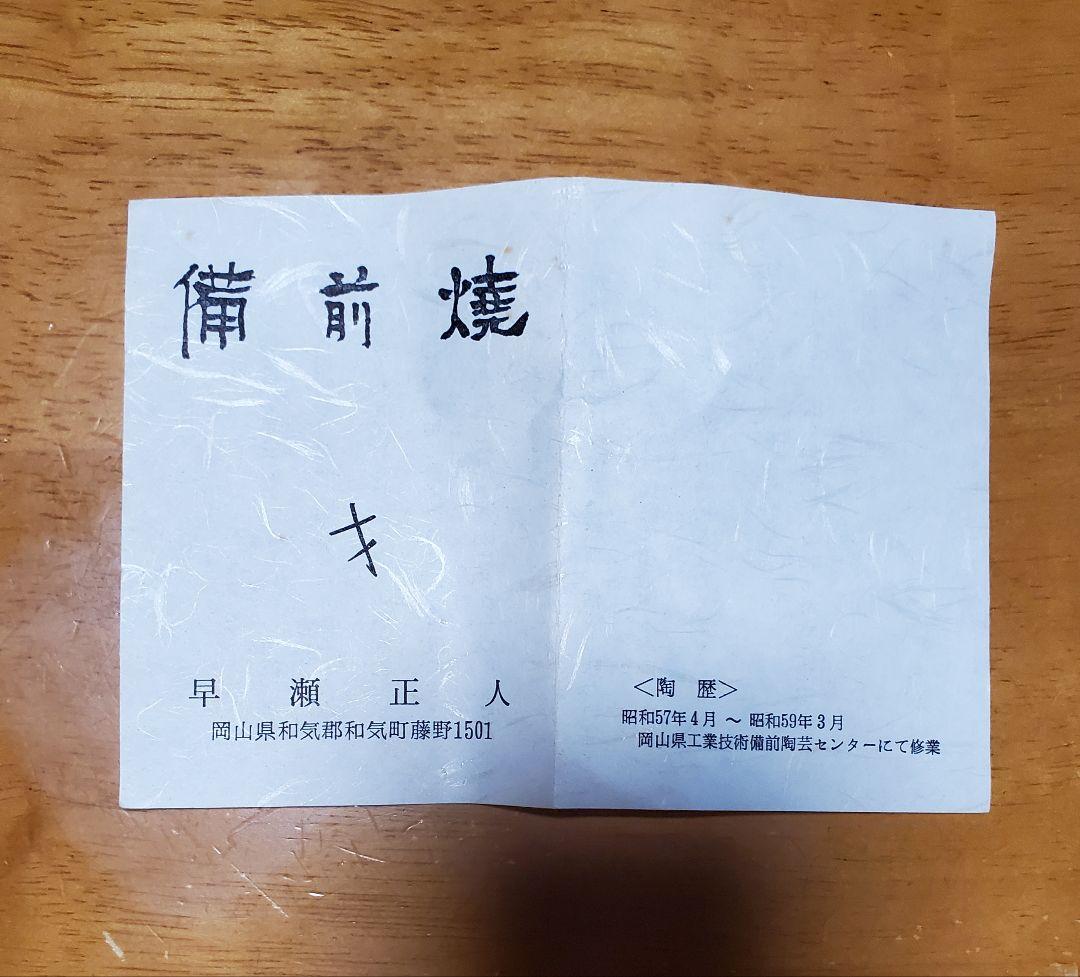 備前燒
早瀬正人
岡山県和気郡和気町藤野1501
＜陶歴＞
昭和57年4月 ～ 昭和59年3月
岡山県工業技術備前陶芸センターにて修業